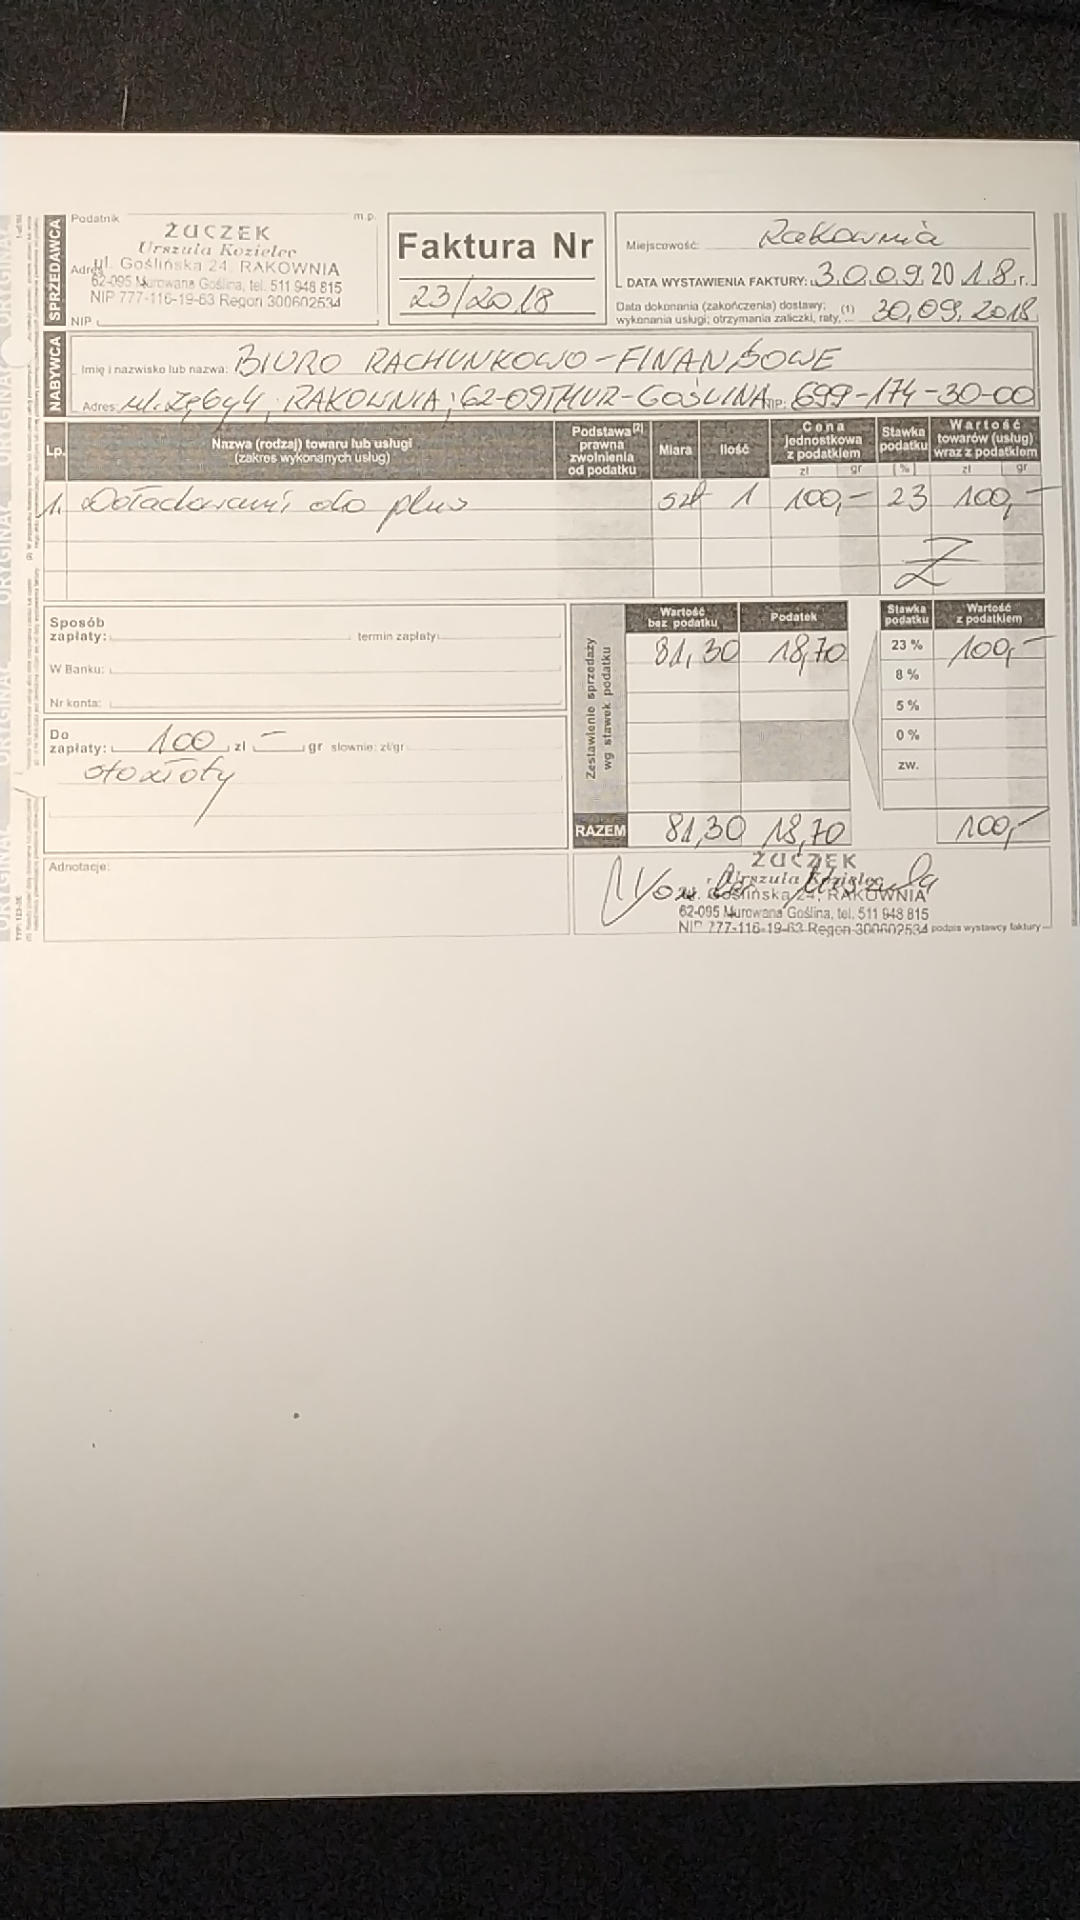 Podatnik
m.p.
ŻUCZEK
Urszula Kozielec
Adres ul. Goślińska 24, RAKOWNIA
62-095 Murowana Goślina, tel. 511 948 815
NIP 777-116-19-63 Regon 300602534
NIP
SPRZEDAWCA
Faktura Nr
23/2018
Miejscowość: Rakownia
DATA WYSTAWIENIA FAKTURY: 30.09.2018 r.
Data dokonania (zakończenia) dostawy; (1)
wykonania usługi; otrzymania zaliczki, raty,... 30,09,2018
NABYWCA
Imię i nazwisko lub nazwa: BIURO RACHUNKOWO-FINANSOWE
Adres: ul. RAKOWNIA, GOŚLINA NIP: 699-174-30-00
Lp. Nazwa (rodzaj) towaru lub usługi (zakres wykonanych usług) Podstawa [2] prawna zwolnienia od podatku Miara Ilość Cena jednostkowa z podatkiem Stawka podatku Wartość towarów (usług) wraz z podatkiem
zł gr [%] zł gr
1. do plus szt 1 100,- 23 100,-
Z
Sposób
zapłaty: termin zapłaty:
W Banku:
Nr konta:
Do
zapłaty: 100 zł – gr słownie: zł/gr
stozłoty
Zestawienie sprzedaży
wg stawek podatku
Wartość bez podatku Podatek Stawka podatku Wartość z podatkiem
81,30 18,70 23 % 100,-
8 %
5 %
0 %
zw.
RAZEM 81,30 18,70 100,-
Adnotacje:
ŻUCZEK
Urszula Kozielec
ul. Goślińska 24, RAKOWNIA
62-095 Murowana Goślina, tel. 511 948 815
NIP 777-116-19-63 Regon 300602534 podpis wystawcy faktury
ORYGINAŁ